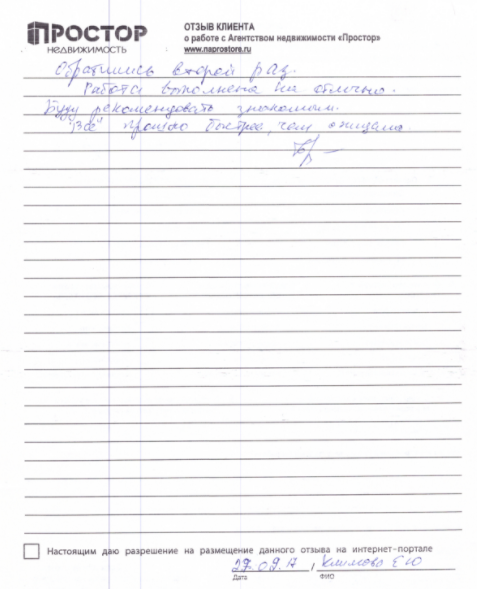 ПРОСТОР
НЕДВИЖИМОСТЬ
ОТЗЫВ КЛИЕНТА
о работе с Агентством недвижимости «Простор»
www.naprostore.ru
Обратились второй раз.
Работа выполнена на отлично.
Буду рекомендовать знакомым.
"Всё" прошло быстрее, чем ожидала.
Настоящим даю разрешение на размещение данного отзыва на интернет-портале
27.09.17, Климова Е Ю
Дата ФИО